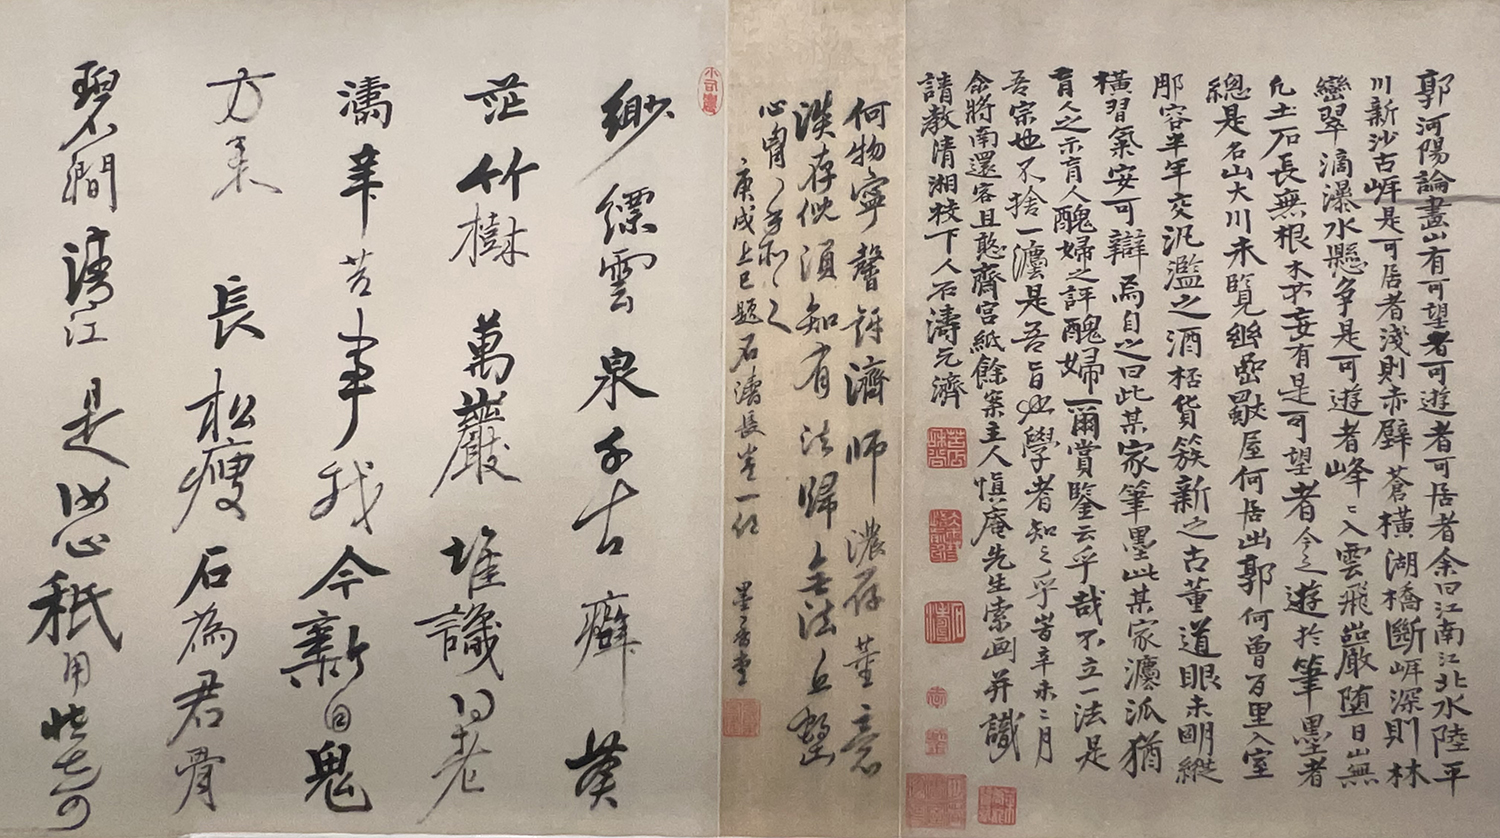 郭河陽論畫山有可望者可遊者可居者余曰江南江北水陸平
川新沙古岸是可居者淺則赤壁蒼橫湖橋斷岸深則林
巒翠滴瀑水懸爭是可遊者峰〻入雲飛巖墮日山無
凡土石長無根木不妄有是可望者今之遊於筆墨者
總是名山大川未覽幽巖獨屋何居出郭何曾百里入室
那容半年交汎濫之酒桮貨簇新之古董道眼未明縱
橫習氣安可辯焉自之曰此某家筆墨此某家灋派猶
盲人之示盲人醜婦之評醜婦爾賞鑒云乎哉不立一法是
吾宗也不捨一灋是吾旨也學者知之乎旹辛未二月
余將南還客且憨齋宮紙餘案主人慎庵先生索画并識
請教清湘枝下人石濤元濟
何物寧馨濟師濃存董意
淡存倪須知有法歸無法丘壑
心胷手
庚戌上巳題石濤長卷一
緲縹雲泉千古癖莫
茫竹樹萬巖堆識得老
濤辛苦事我今斷鬼
方來長松瘦石為君骨
碧澗清江是心秖用可